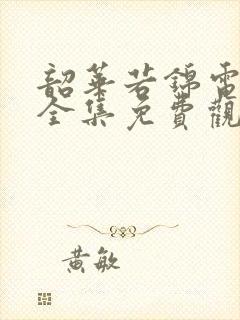 韶華若錦電
全集免費觀
黃敏